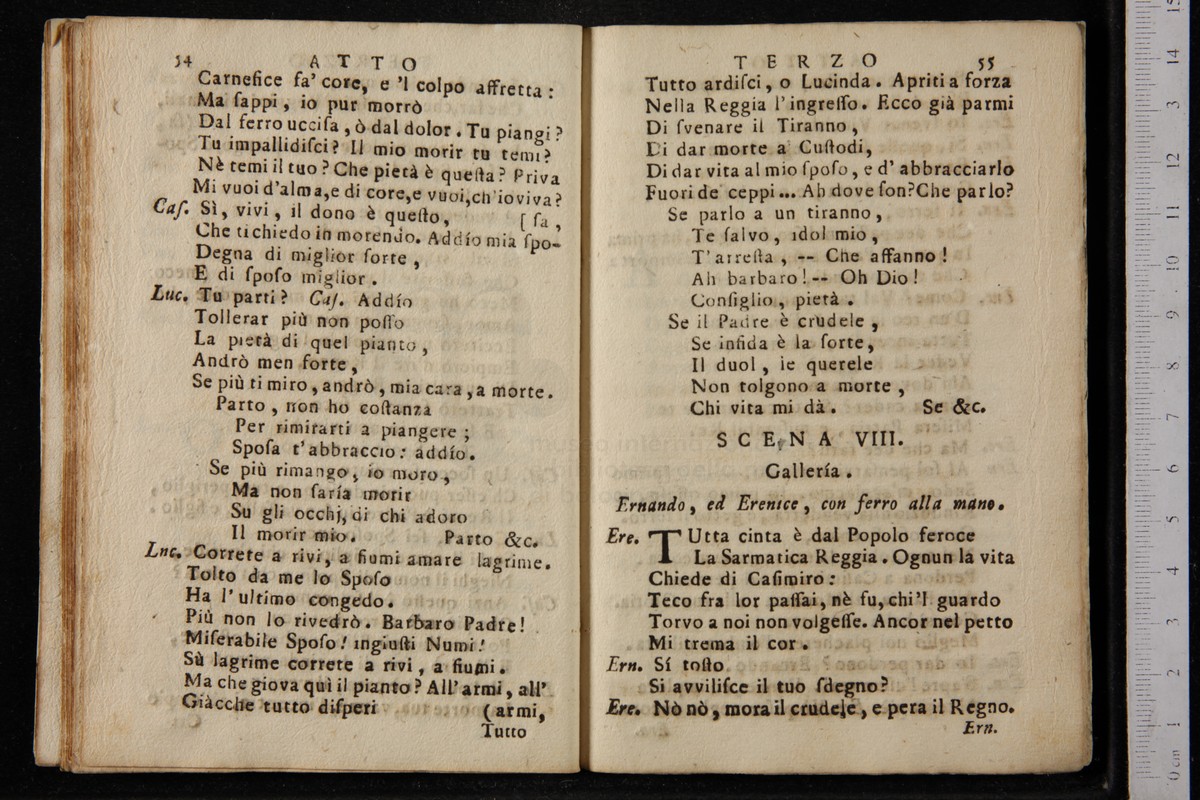 54 ATTO
Carnefice fa' core, e 'l colpo affretta :
Ma ſappi, io pur morrò
Dal ferro ucciſa, ò dal dolor. Tu piangi ?
Tu impallidiſci ? Il mio morir tu temi ?
Nè temi il tuo ? Che pietà è queſta ? Priva
Mi vuoi d'alma, e di core, e vuoi, ch'io viva ?
Caſ. Sì, vivi, il dono è queſto, [ ſa,
Che ti chiedo in morendo. Addío mia ſpo-
Degna di miglior ſorte,
E di ſpoſo miglior.
Luc. Tu parti ? Caſ. Addío
Tollerar più non poſſo
La pietà di quel pianto,
Andrò men forte,
Se più ti miro, andrò, mia cara, a morte.
Parto, non ho coſtanza
Per rimirarti a piangere ;
Spoſa t' abbraccio : addío.
Se più rimango, io moro,
Ma non ſaría morir
Su gli occhj, di chi adoro
Il morir mio. Parto &c.
Luc. Correte a rivi, a fiumi amare lagrime.
Tolto da me lo Spoſo
Ha l' ultimo congedo.
Più non lo rivedrò. Barbaro Padre !
Miſerabile Spoſo ! ingiuſti Numi !
Sù lagrime correte a rivi, a fiumi.
Ma che giova quì il pianto ? All' armi, all'
Giàcche tutto diſperi (armi,
Tutto
TERZO 55
Tutto ardiſci, o Lucinda. Apriti a forza
Nella Reggia l' ingreſſo. Ecco già parmi
Di ſvenare il Tiranno,
Di dar morte a' Cuſtodi,
Di dar vita al mio ſpoſo, e d' abbracciarlo
Fuori de' ceppi... Ah dove ſon? Che parlo?
Se parlo a un tiranno,
Te ſalvo, idol mio,
T' arreſta, -- Che affanno !
Ah barbaro ! -- Oh Dio !
Conſiglio, pietà.
Se il Padre è crudele,
Se infida è la ſorte,
Il duol, le querele
Non tolgono a morte,
Chi vita mi dà. Se &c.
SCENA VIII.
Gallería.
Ernando, ed Erenice, con ferro alla mano.
Ere. TUtta cinta è dal Popolo feroce
La Sarmatica Reggia. Ognun la vita
Chiede di Caſimiro :
Teco fra lor paſſai, nè fu, chi 'l guardo
Torvo a noi non volgeſſe. Ancor nel petto
Mi trema il cor.
Ern. Sí toſto
Si avviliſce il tuo ſdegno?
Ere. Nò nò, mora il crudele, e pera il Regno.
Ern.